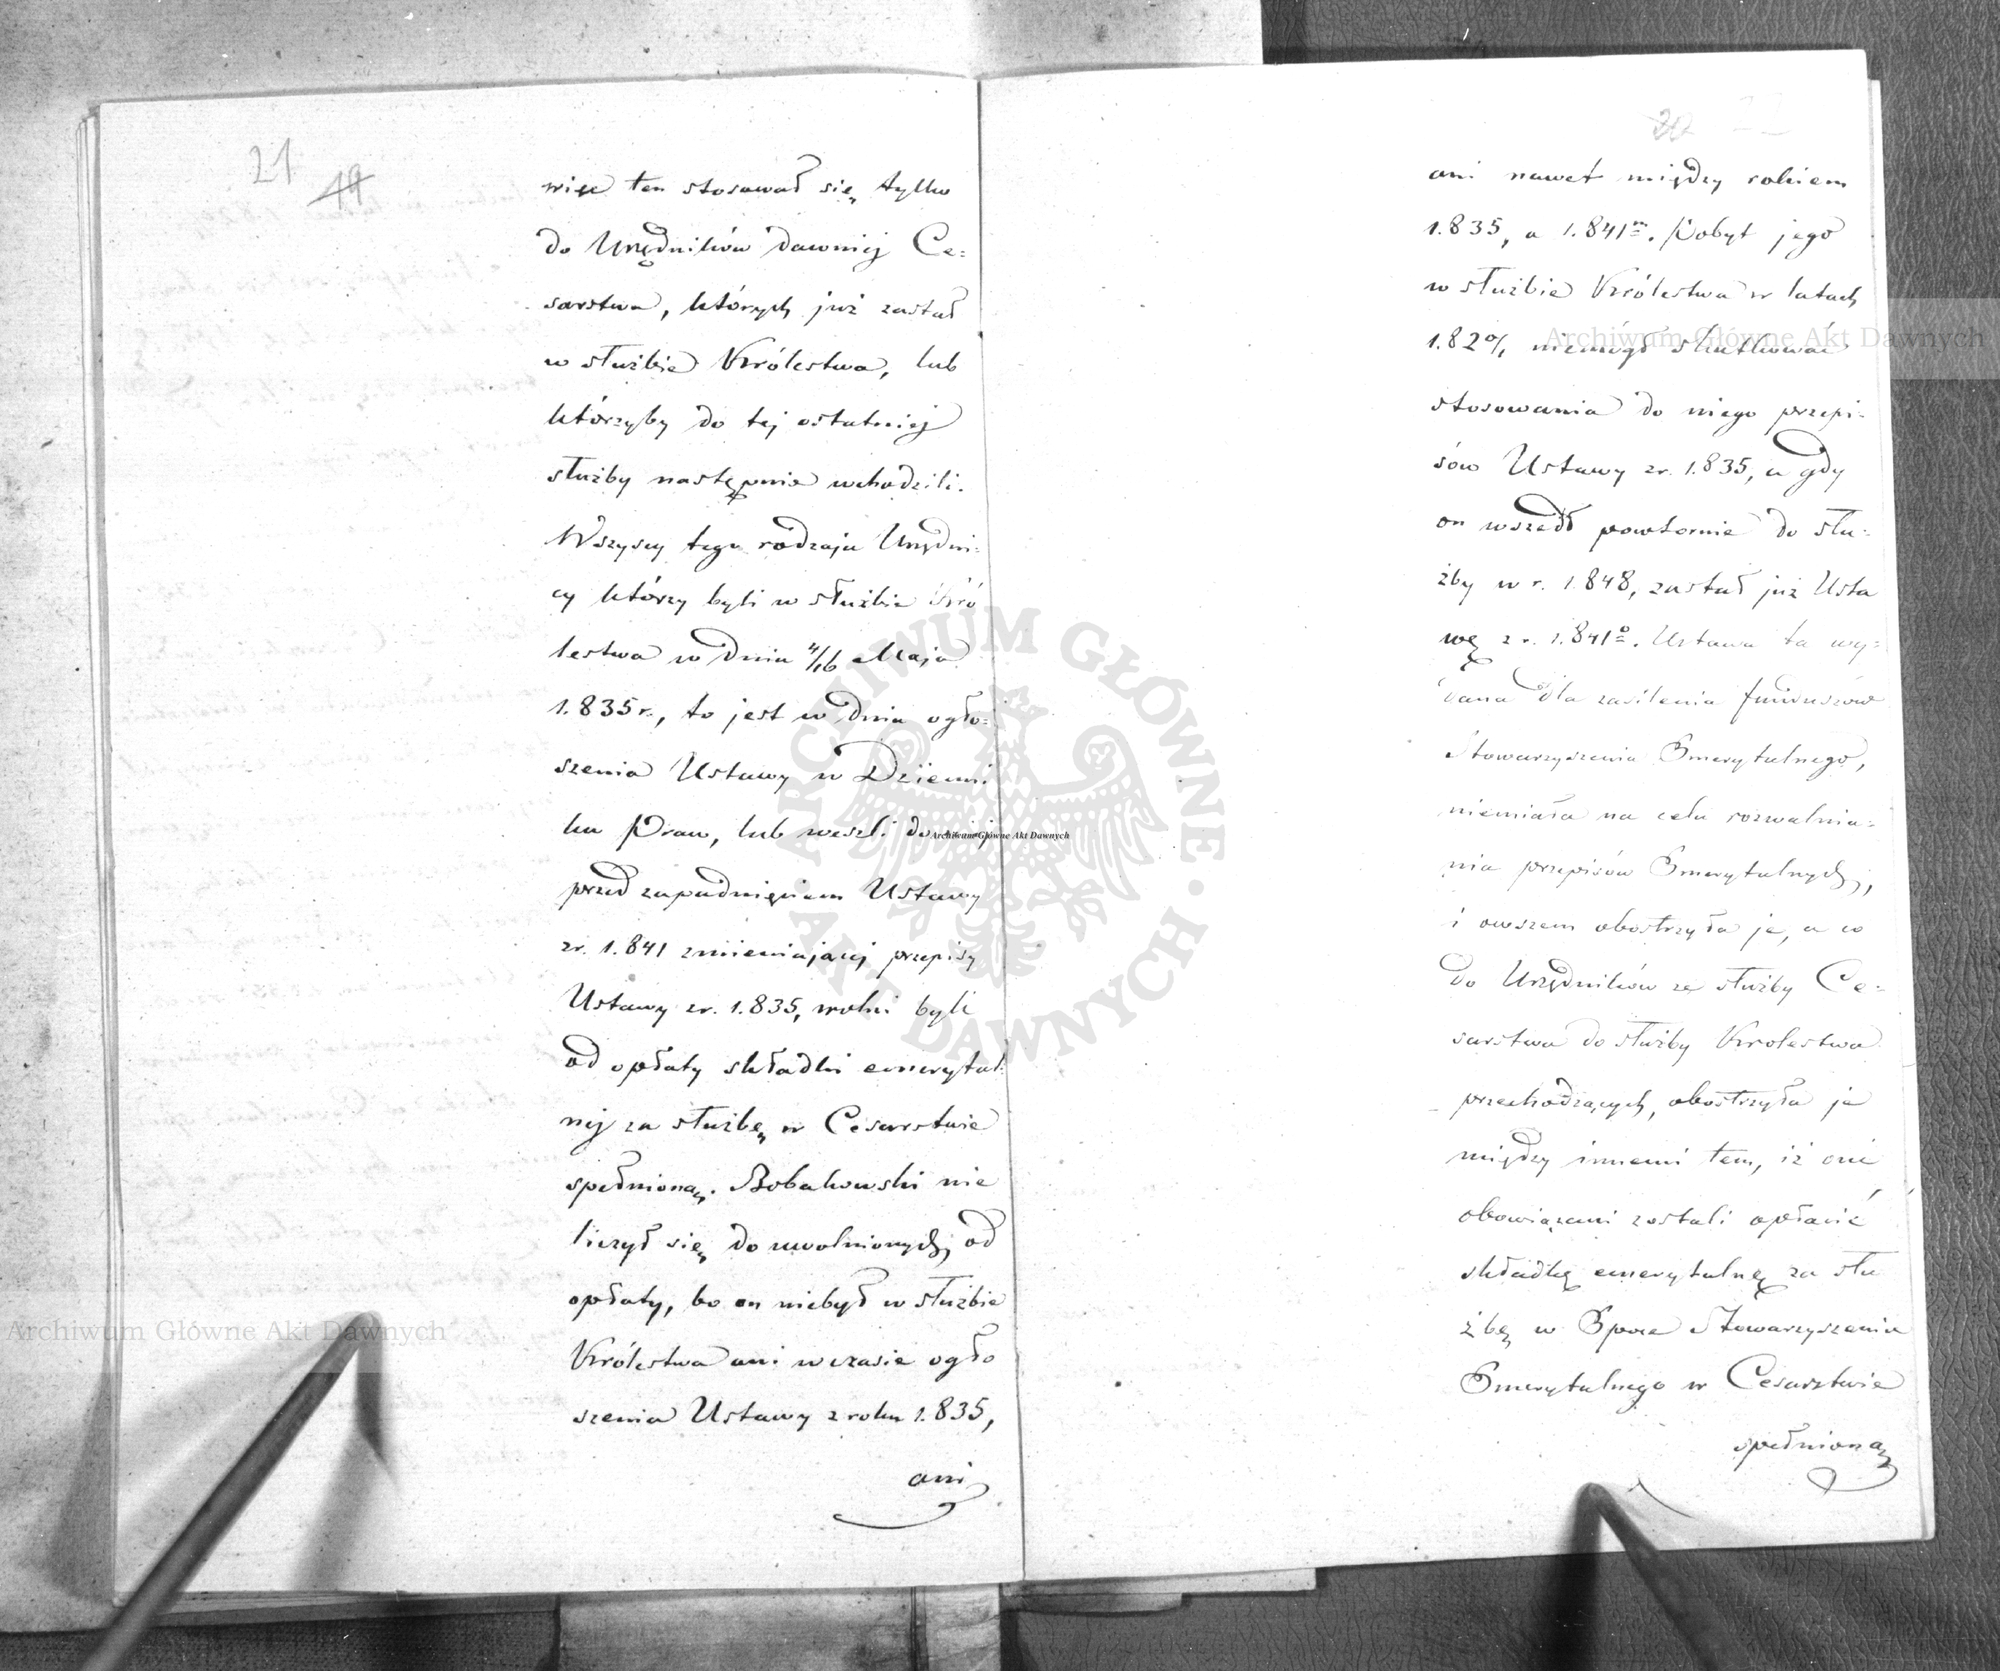 21 19
więc ten stosował się tylko
do Urzędników dawniej Ce=
sarstwa, których już zastał
w służbie Królestwa, lub
którzyby do tej ostatniej
służby następnie wchodzili.
Wszyscy tego rodzaju Urzędni=
cy którzy byli w służbie Kró
lestwa w dniu 4/16 Maja
1.835 r., to jest w dniu ogło=
szenia Ustawy w Dzienni
ku Praw, lub weszli do niej
przed zapadnięciem Ustawy
z r. 1.841 zmieniającej przepisy
Ustawy z r. 1.835, wolni byli
od opłaty składki emerytal=
nej za służbę w Cesarstwie
spełnioną. Bobakowski nie
liczył się do uwolnionych od
opłaty, bo on niebył w służbie
Królestwa ani wczasie ogło
szenia Ustawy z roku 1.835,
ani
20 22
ani nawet między rokiem
1.835, a 1.841m. Pobyt jego
w służbie Królestwa w latach
1.820/1 niemógł skutkować
stosowania do niego przepi=
sów Ustawy z r. 1.835, a gdy
on wszedł powtornie do słu=
żby w r. 1.848, zastał już Usta
wę z r. 1.841o. Ustawa ta wy=
dana dla zasilenia funduszów
Stowarzyszenia Emerytalnego,
niemiała na celu rozwalnia=
nia przepisów Emerytalnych,
i owszem obostrzyła je, a co
do Urzędników ze służby Ce=
sarstwa do służby Krolestwa
przechodzących, obostrzyła je
między innemi tem, iż oni
obowiązani zostali opłacić
składkę emerytalnę za słu
żbę w Epoce Stowarzyszenia
Emerytalnego w Cesarstwie
spełnioną
Archiwum Główne Akt Dawnych
Archiwum Główne Akt Dawnych
Archiwum Główne Akt Dawnych
ARCHIWUM GŁÓWNE · AKT DAWNYCH ·